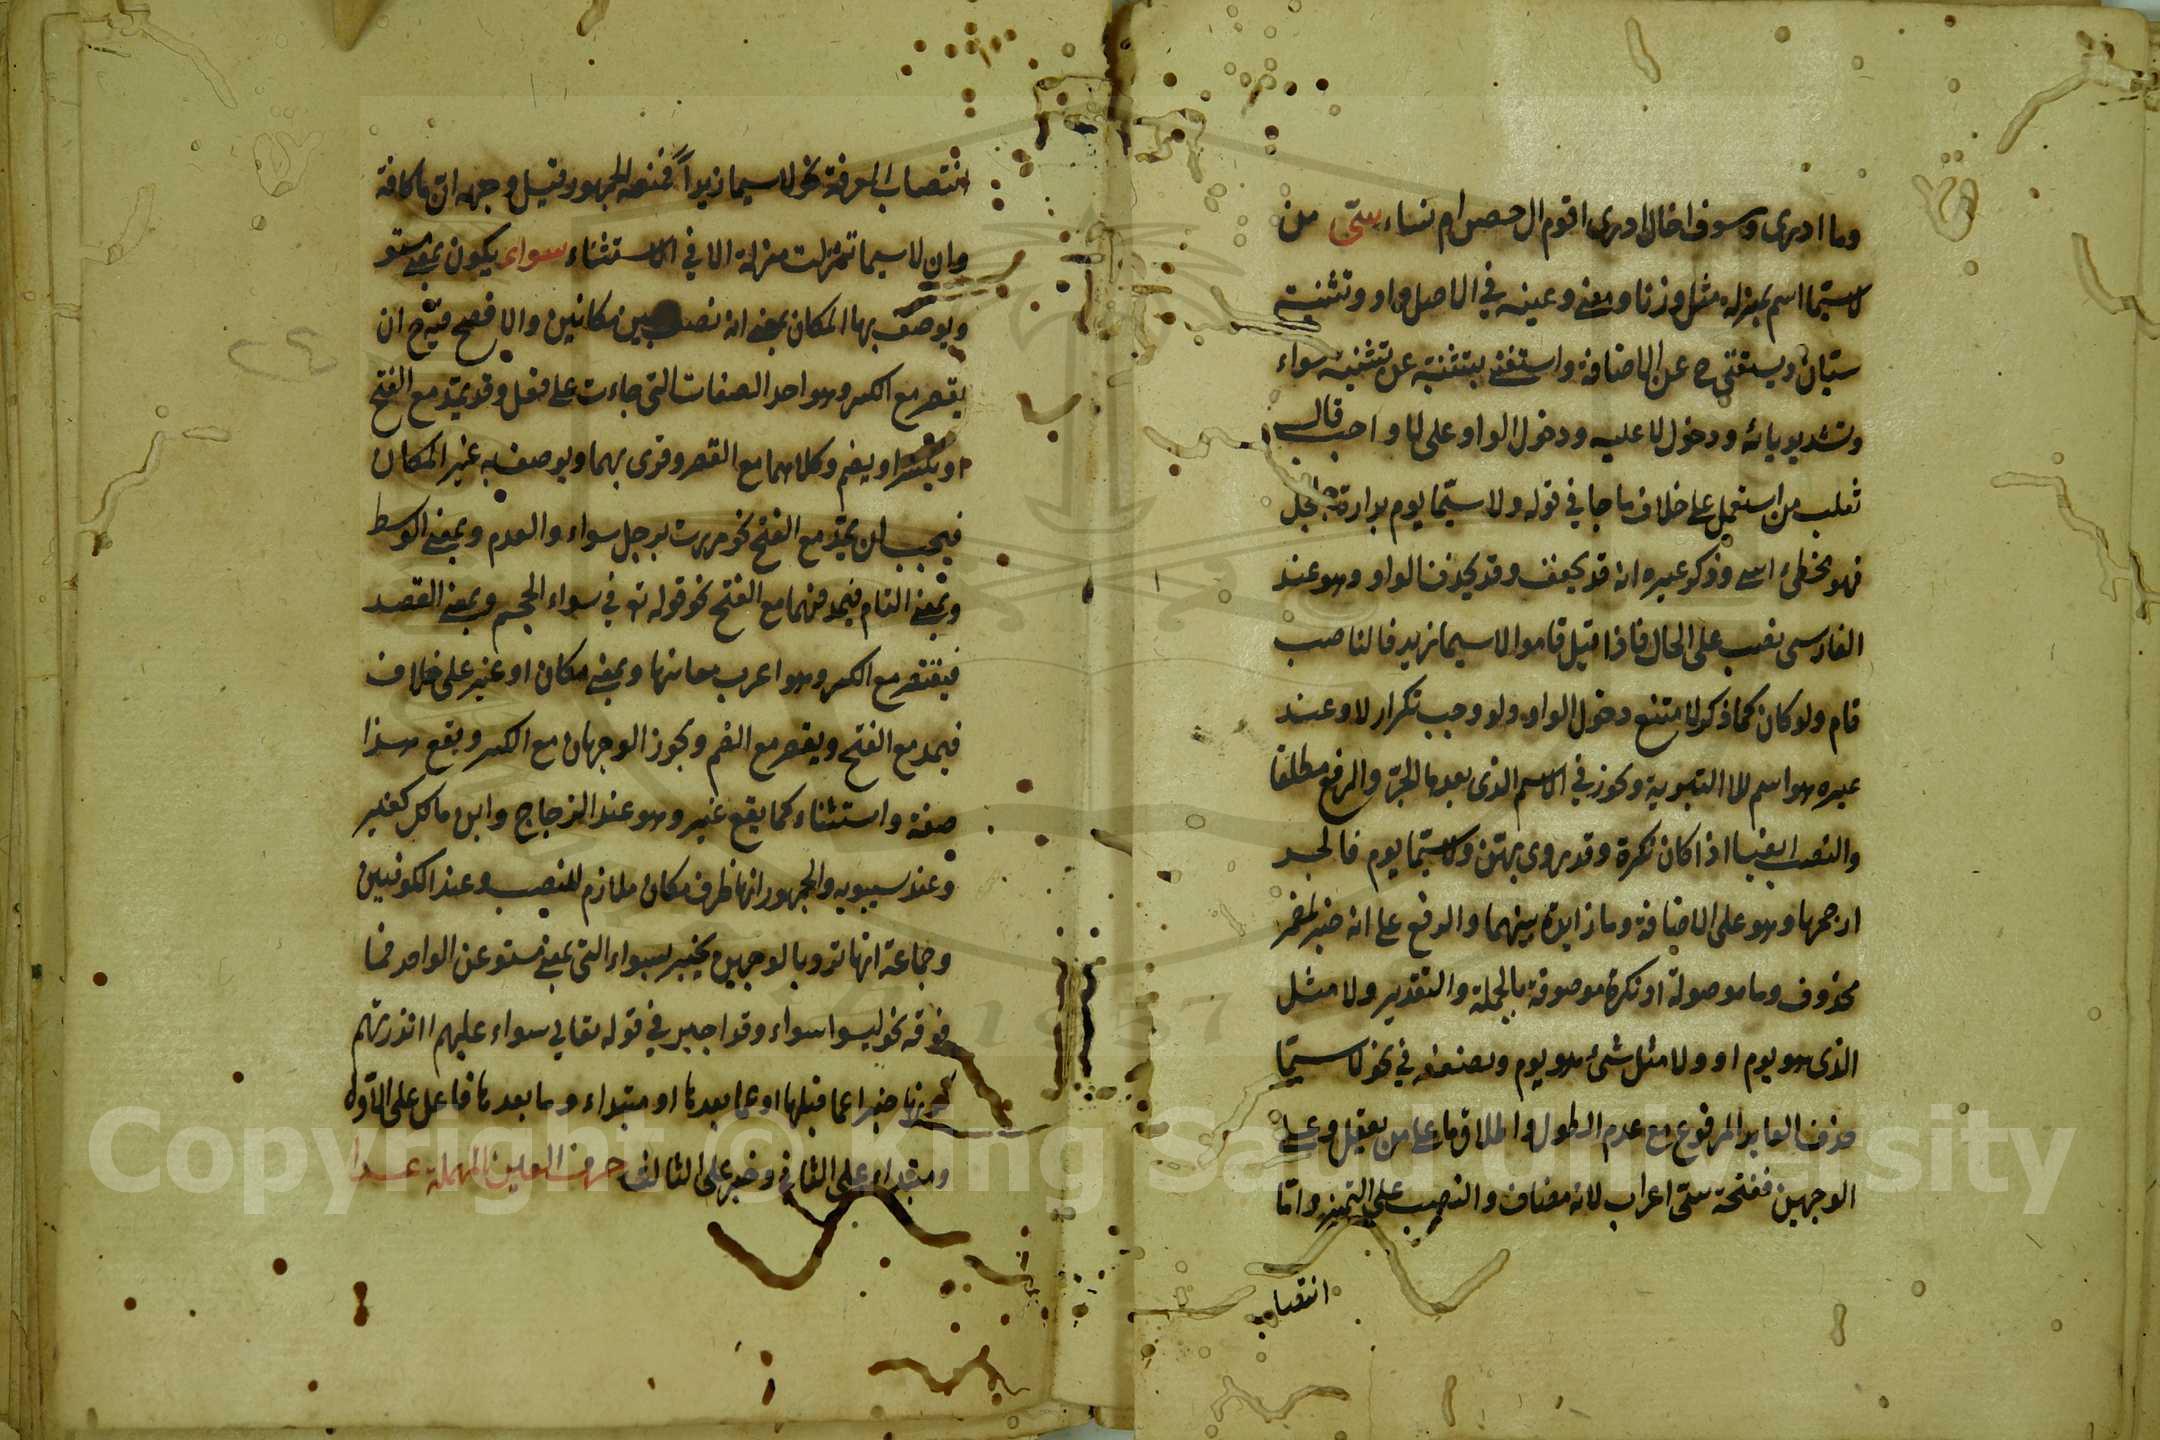 وما ادرى وسوف اخال ادرى اقوم ال حصن ام نساء سىّ من
لاسيّما اسم بمنزلة مثل وزنا ومعنى وعينه في الاصل واو وتثنيته
سيّان ويستغنى ح عن الاضافة واستغنى بتثنيته عن تثنية سواء
وتشديد يائه ودخول لا عليه ودخول الواو على لا واجب قال
ثعلب من استعمل على خلاف ما جا في قوله ولا سيّما يوم بدارة جلجل
فهو مخطئ وذكر غيره انه قد يخفف وقد يحذف الواو وهو عند
الفارسى نصب على الحال فاذا قيل قاموا لاسيما زيد فالناصب
قام ولو كان كما ذكر لامتنع دخول الواو ولو وجب تكرار لا وعند
غيره هو اسم للا التبرية ويجوز في الاسم الذى بعدها الجرّ والرفع مطلقا
والنصب ايضا اذا كان نكرة وقد روى بهن ولاسيّما يوم فالجر
ارجحها وهو على الاضافة وما زايدة بينهما والرفع على انه خبر لمضمر
محذوف وما موصولة او نكرة موصوفة بالجملة والتقدير ولا مثل
الذى هو يوم او ولا مثل شئ هو يوم ويضعفه في نحو لا سيّما
حذف العايد المرفوع مع عدم الطول واطلاق ما على من يعقل وعلى
الوجهين ففتحة سىّ اعراب لانه مضاف والنصب على التميز وامّا
انتصاب
انتصاب المعرفة نحو لا سيما زيداً فمنعه الجمهور قيل وجهه انّ ما كافة
وان لا سيما تنزلت منزلة الا في الاستثناء سواء يكون بمعنى مستو
ويوصف بها المكان بمعنى انه نصف بين مكانين والافصح فيه ح ان
يقصر مع الكسر وهو احد الصفات التى جاءت على فعل وقد يمدّ مع الفتح
او يكسر او يضم وكلاهما مع القصر وقرى بهما ويوصف به غير المكان
فيجب ان يمدّ مع الفتح نحو مررت برجل سواء والعدم وبمعنى الوسط
وبمعنى التام فيمد فيهما مع الفتح نحو قوله تع في سواء الجحيم وبمعنى القصد
فيقتصر مع الكسر وهو اغرب معانيها وبمعنى مكان او غير على خلاف
فيمد مع الفتح ويقصر مع الضم ويجوز الوجهان مع الكسر ويقع هذا
صفة واستثناء كما يقع غير وهو عند الزجاج وابن مالك كغير
وعند سيبويه والجمهور انها ظرف مكان ملازم للنصب وعند الكوفيين
وجماعة انها ترد بالوجهين يخبر بسواء التى بمعنى مستو عن الواحد فما
فوقه نحو ليسوا سواء وقد اجيز في قوله تعالى سواء عليهم اانذرتهم
كونها خبرا عما قبلها او عما بعدها او مبتداء وما بعدها فاعل على الاوّل
ومبتداء على الثاني وخبر على الثالث حرف العين المهملة عدا